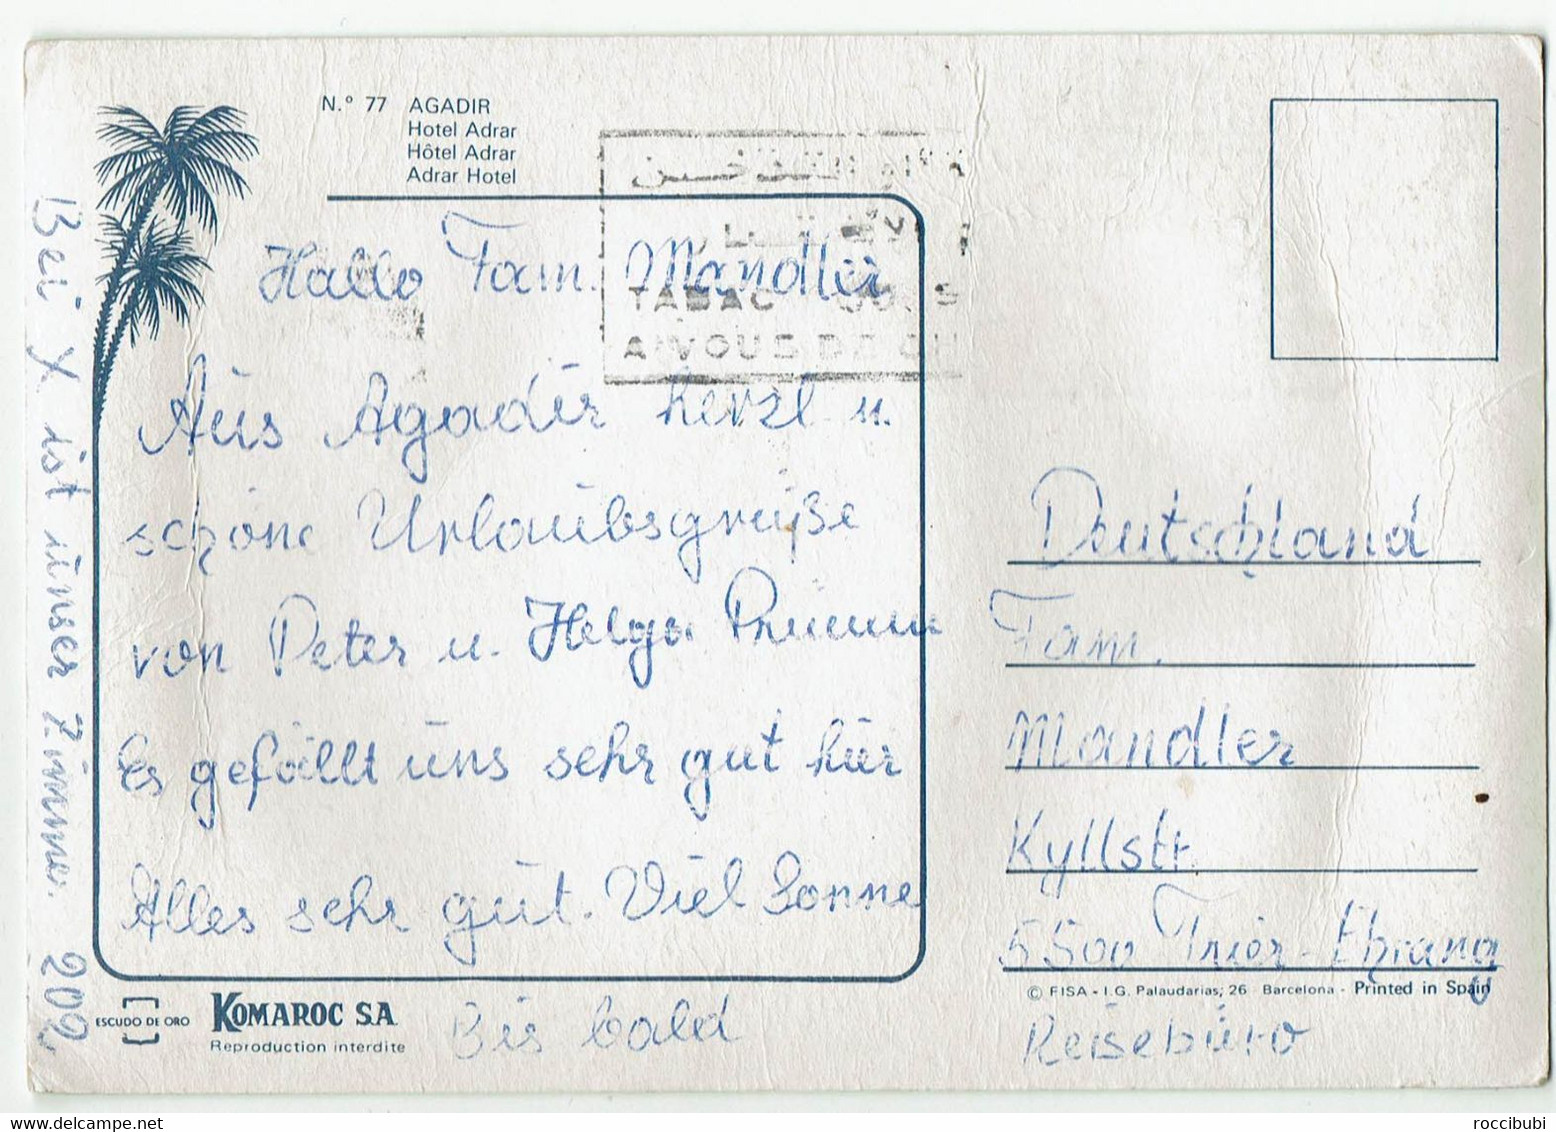 N.º 77 AGADIR
Hotel Adrar
Hôtel Adrar
Adrar Hotel
TABAC
A VOUS DE
Hallo Fam. Mandler
Aus Agadir herzl u.
schöne Urlaubsgrüße
von Peter u. Helga
Es gefällt uns sehr gut hier
Alles sehr gut. Viel Sonne
Bis bald
Bei X ist unser Zimmer. 202
Deutschland
Fam.
Mandler
Kyllstr.
5500 Trier-Ehrang
Reisebüro
ESCUDO DE ORO
KOMAROC S.A.
Reproduction interdite
© FISA - I.G. Palaudarias, 26 - Barcelona - Printed in Spain
roccibubi